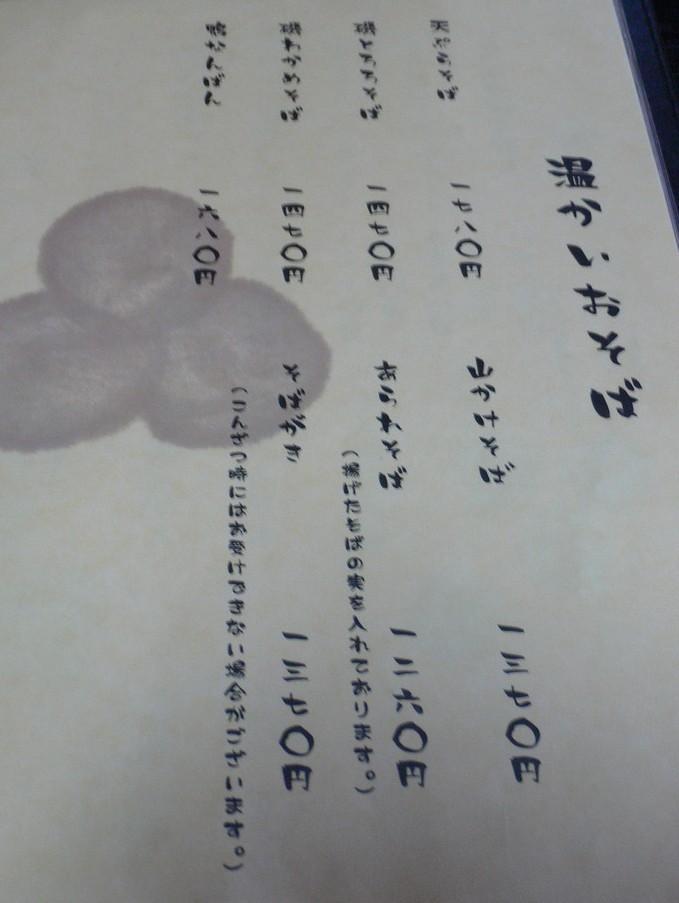 温かいおそば
天ぷらそば 一七八〇円
山かけそば 一三七〇円
磯とろろそば 一四七〇円
あられそば 一二六〇円
(揚げたそばの実を入れております。)
磯わかめそば 一四七〇円
そばがき 一三七〇円
(こみあう時にはお受けできない場合がございます。)
鴨なんばん 一六八〇円